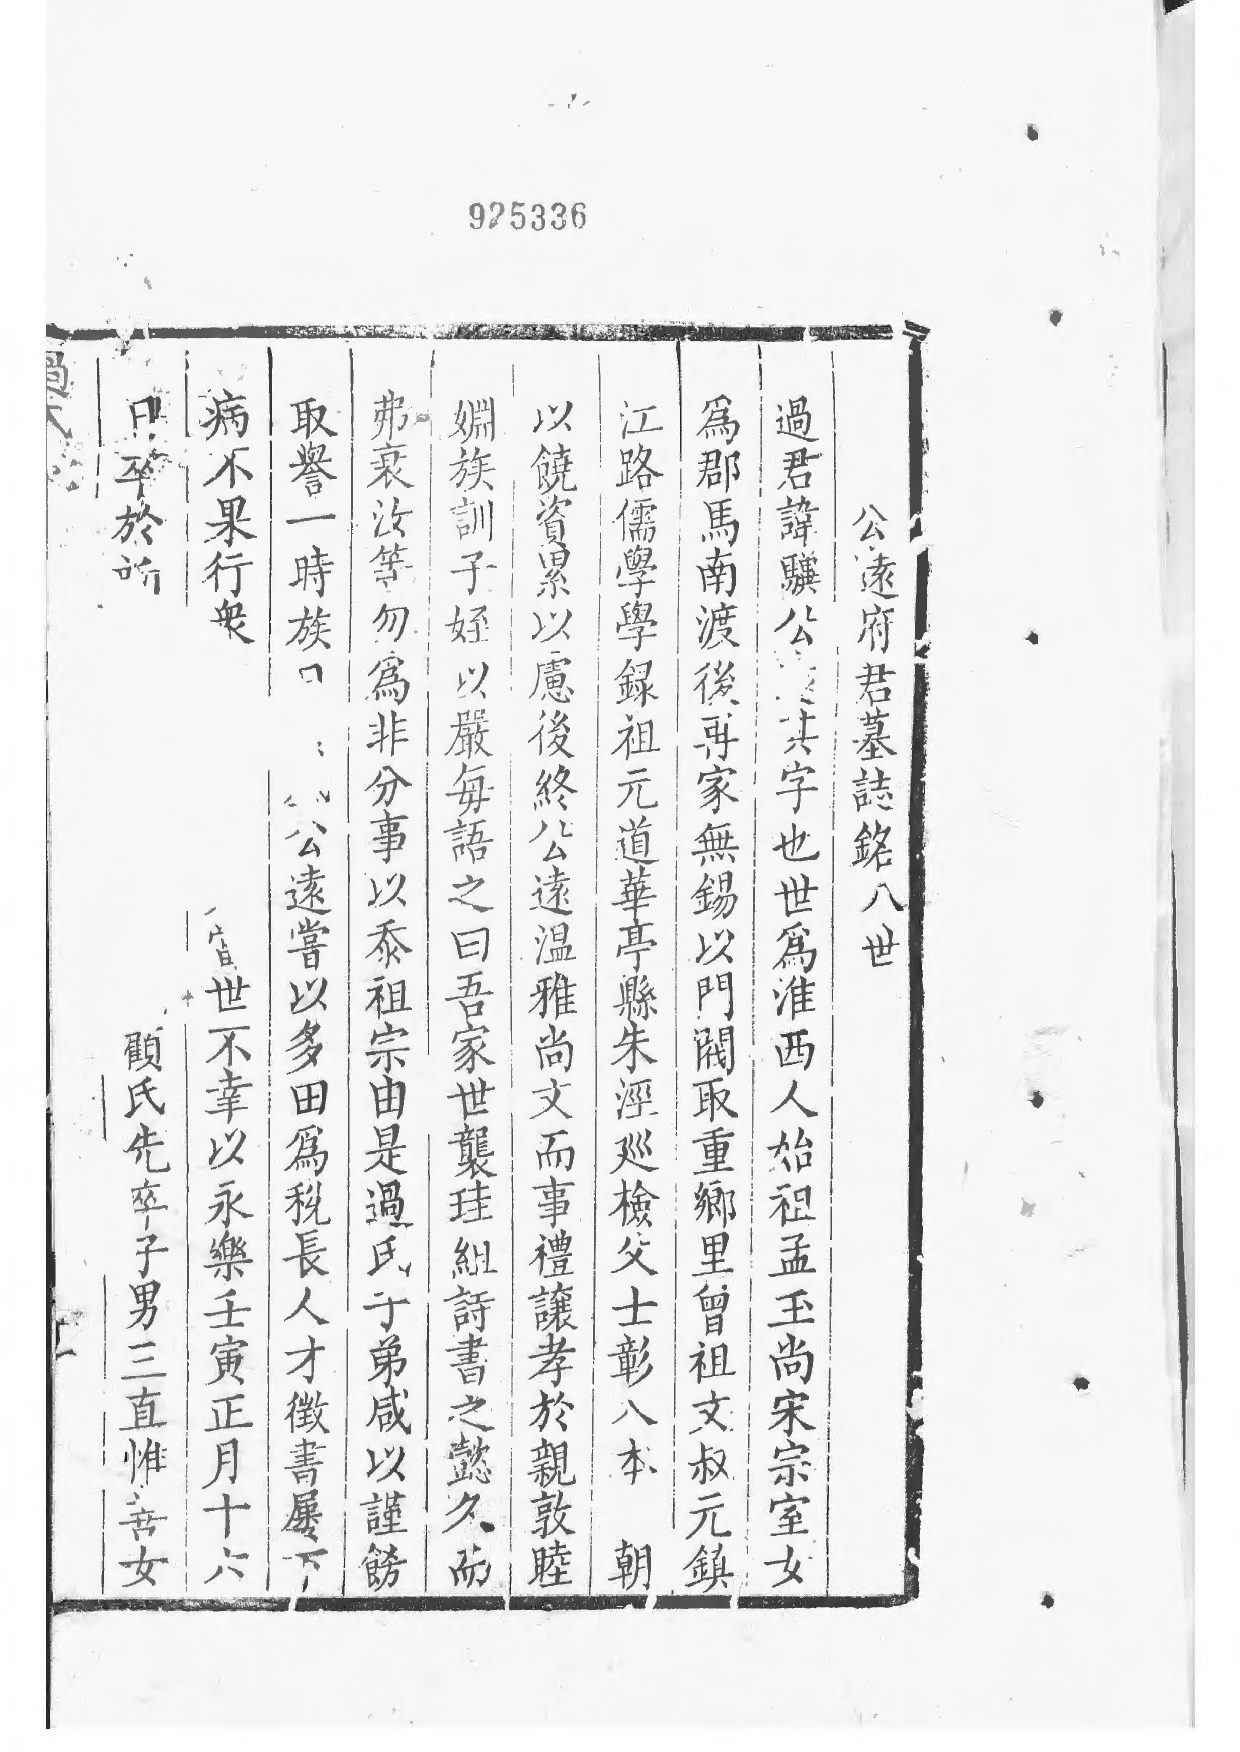 925336
公遠府君墓誌銘八世
過君諱驥公遠其字也世爲淮西人始祖孟玉尚宋宗室女
爲郡馬南渡後再家無錫以門閥取重鄉里曾祖文叔元鎮
江路儒學學録祖元道華亭縣朱涇廵檢父士彰入本 朝
以饒資累以慮後終公遠温雅尚文而事禮讓孝於親敦睦
婣族訓子姪以嚴每語之曰吾家世襲珪組詩書之懿久而
弗衰汝等勿爲非分事以忝祖宗由是過氏子弟咸以謹飭
取譽一時族 公遠嘗以多田爲税長人才徵書屢下
病不果行衆 世不幸以永樂壬寅正月十六
日卒於所 顧氏先卒子男三直惟善女
過